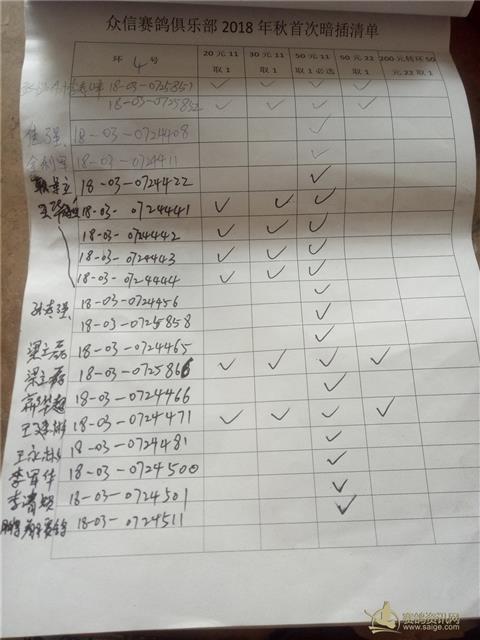 众信赛鸽俱乐部 2018 年秋首次暗插清单
环 4 号 20 元 11 取 1 30 元 11 取 1 50 元 11 取 1 必选 50 元 22 取 1 200 元转环 50 元 22 取 1
18-03-0725851 ✓ ✓ ✓ ✓
18-03-0725852 ✓ ✓ ✓ ✓
18-03-0724408 ✓
18-03-0724411 ✓
18-03-0724422 ✓
18-03-0724441 ✓ ✓ ✓
18-03-0724442 ✓ ✓ ✓
18-03-0724443 ✓ ✓ ✓
18-03-0724444 ✓ ✓ ✓
18-03-0724456 ✓
18-03-0725858 ✓
梁立磊 18-03-0724465 ✓
梁立磊 18-03-0725866 ✓ ✓ ✓ ✓
18-03-0724466 ✓
18-03-0724471 ✓ ✓ ✓ ✓
18-03-0724481 ✓
李军华 18-03-0724500 ✓
18-03-0724501 ✓
18-03-0724511 ✓
赛鸽资讯网
www.saige.com